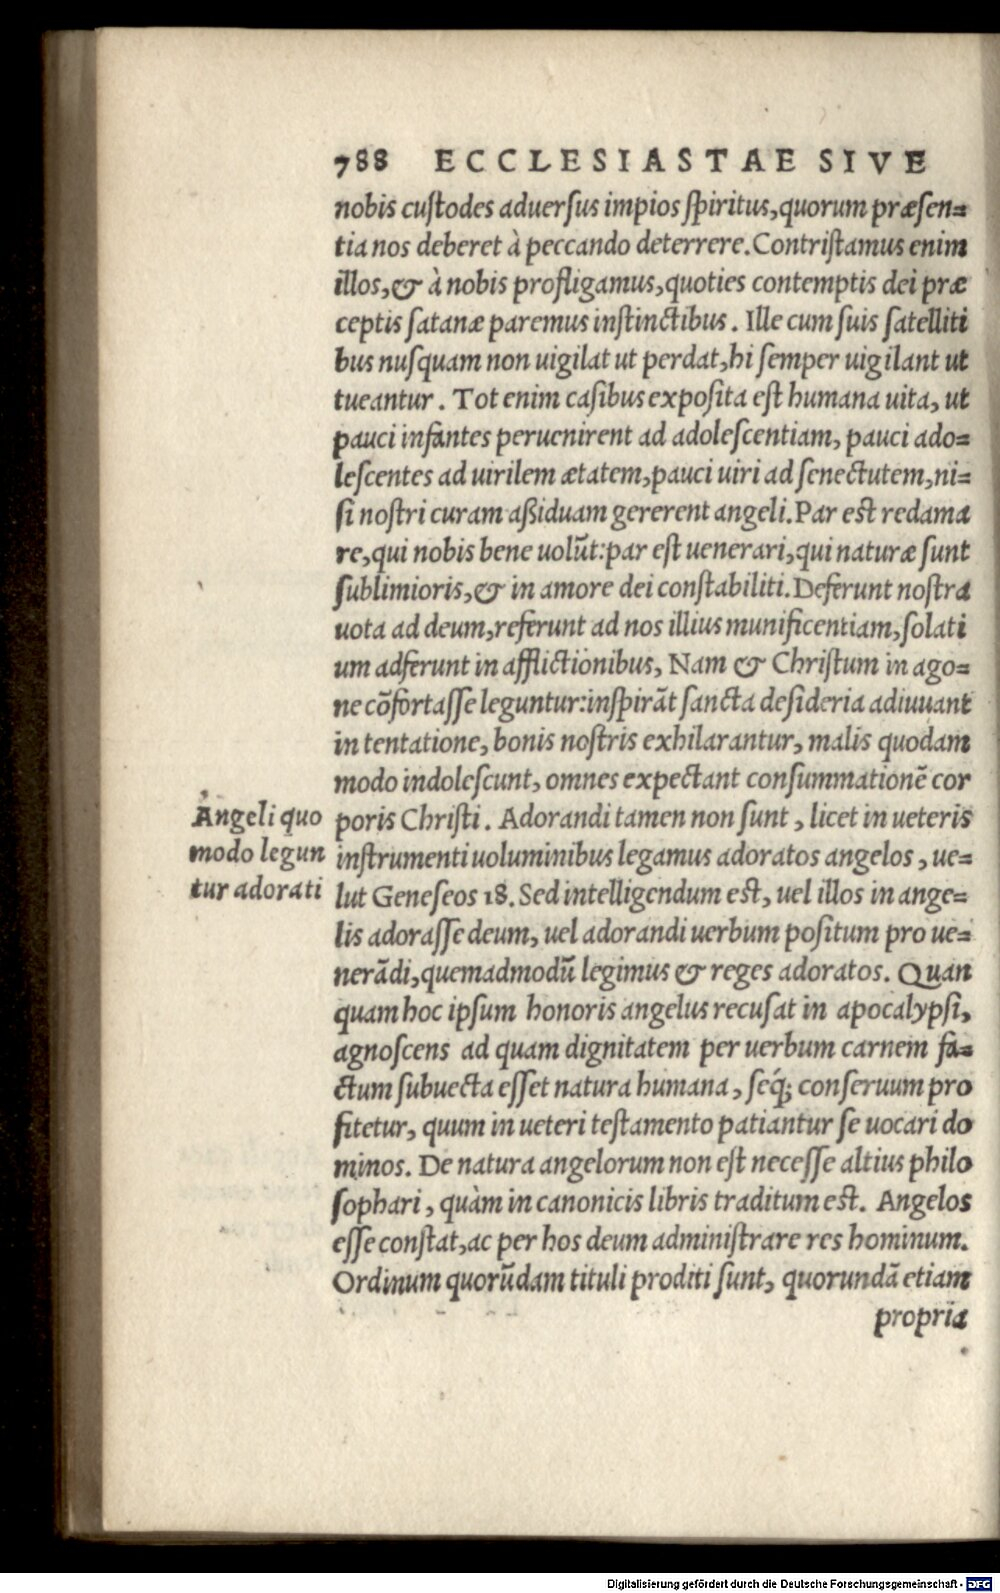 788 ECCLESIASTAE SIVE
nobis custodes aduersus impios spiritus, quorum præsen=
tia nos deberet à peccando deterrere. Contristamus enim
illos, & à nobis profligamus, quoties contemptis dei præ
ceptis satanæ paremus instinctibus. Ille cum suis satelliti
bus nusquam non uigilat ut perdat, hi semper uigilant ut
tueantur. Tot enim casibus exposita est humana uita, ut
pauci infantes peruenirent ad adolescentiam, pauci ado=
lescentes ad uirilem ætatem, pauci uiri ad senectutem, ni=
si nostri curam aßiduam gererent angeli. Par est redama
re, qui nobis bene uolūt: par est uenerari, qui naturæ sunt
sublimioris, & in amore dei constabiliti. Deferunt nostra
uota ad deum, referunt ad nos illius munificentiam, solati
um adferunt in afflictionibus, Nam & Christum in ago=
ne cōfortasse leguntur: inspirāt sancta desideria adiuuant
in tentatione, bonis nostris exhilarantur, malis quodam
modo indolescunt, omnes expectant consummationē cor
poris Christi. Adorandi tamen non sunt, licet in ueteris
instrumenti uoluminibus legamus adoratos angelos, ue=
lut Geneseos 18. Sed intelligendum est, uel illos in ange=
lis adorasse deum, uel adorandi uerbum positum pro ue=
nerādi, quemadmodū legimus & reges adoratos. Quan
quam hoc ipsum honoris angelus recusat in apocalypsi,
agnoscens ad quam dignitatem per uerbum carnem fa=
ctum subuecta esset natura humana, seq́; conseruum pro
fitetur, quum in ueteri testamento patiantur se uocari do
minos. De natura angelorum non est necesse altius philo
sophari, quàm in canonicis libris traditum est. Angelos
esse constat, ac per hos deum administrare res hominum.
Ordinum quorūdam tituli proditi sunt, quorundā etiam
propria
Angeli quo
modo legun
tur adorati
Digitalisierung gefördert durch die Deutsche Forschungsgemeinschaft - DFG